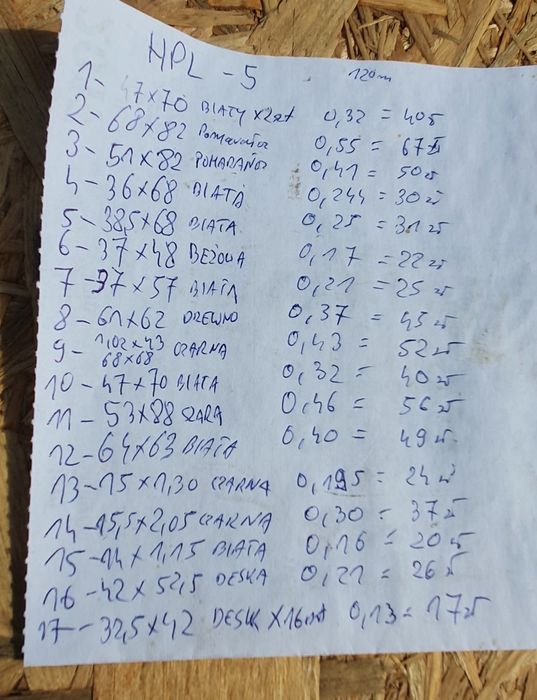 HPL - 5
120m
1 - 47×70 BIAŁY ×2szt 0,32 = 40zł
2 - 68×82 Pomarańcz 0,55 = 67zł
3 - 51×82 POMARAŃCZ 0,41 = 50zł
4 - 36×68 BIAŁA 0,244 = 30zł
5 - 38,5×68 BIAŁA 0,25 = 31zł
6 - 37×48 BEŻOWA 0,17 = 22zł
7 - 37×57 BIAŁA 0,21 = 25zł
8 - 61×62 DREWNO 0,37 = 45zł
9 - 1,02×43 CZARNA 0,43 = 52zł
68×68
10 - 47×70 BIAŁA 0,32 = 40zł
11 - 53×88 SZARA 0,46 = 56zł
12 - 64×63 BIAŁA 0,40 = 49zł
13 - 15×1,30 CZARNA 0,195 = 24zł
14 - 15,5×2,05 CZARNA 0,30 = 37zł
15 - 14×1,15 BIAŁA 0,16 = 20zł
16 - 42×52,5 DESKA 0,21 = 26zł
17 - 32,5×42 DESKA ×16szt 0,13 = 17zł